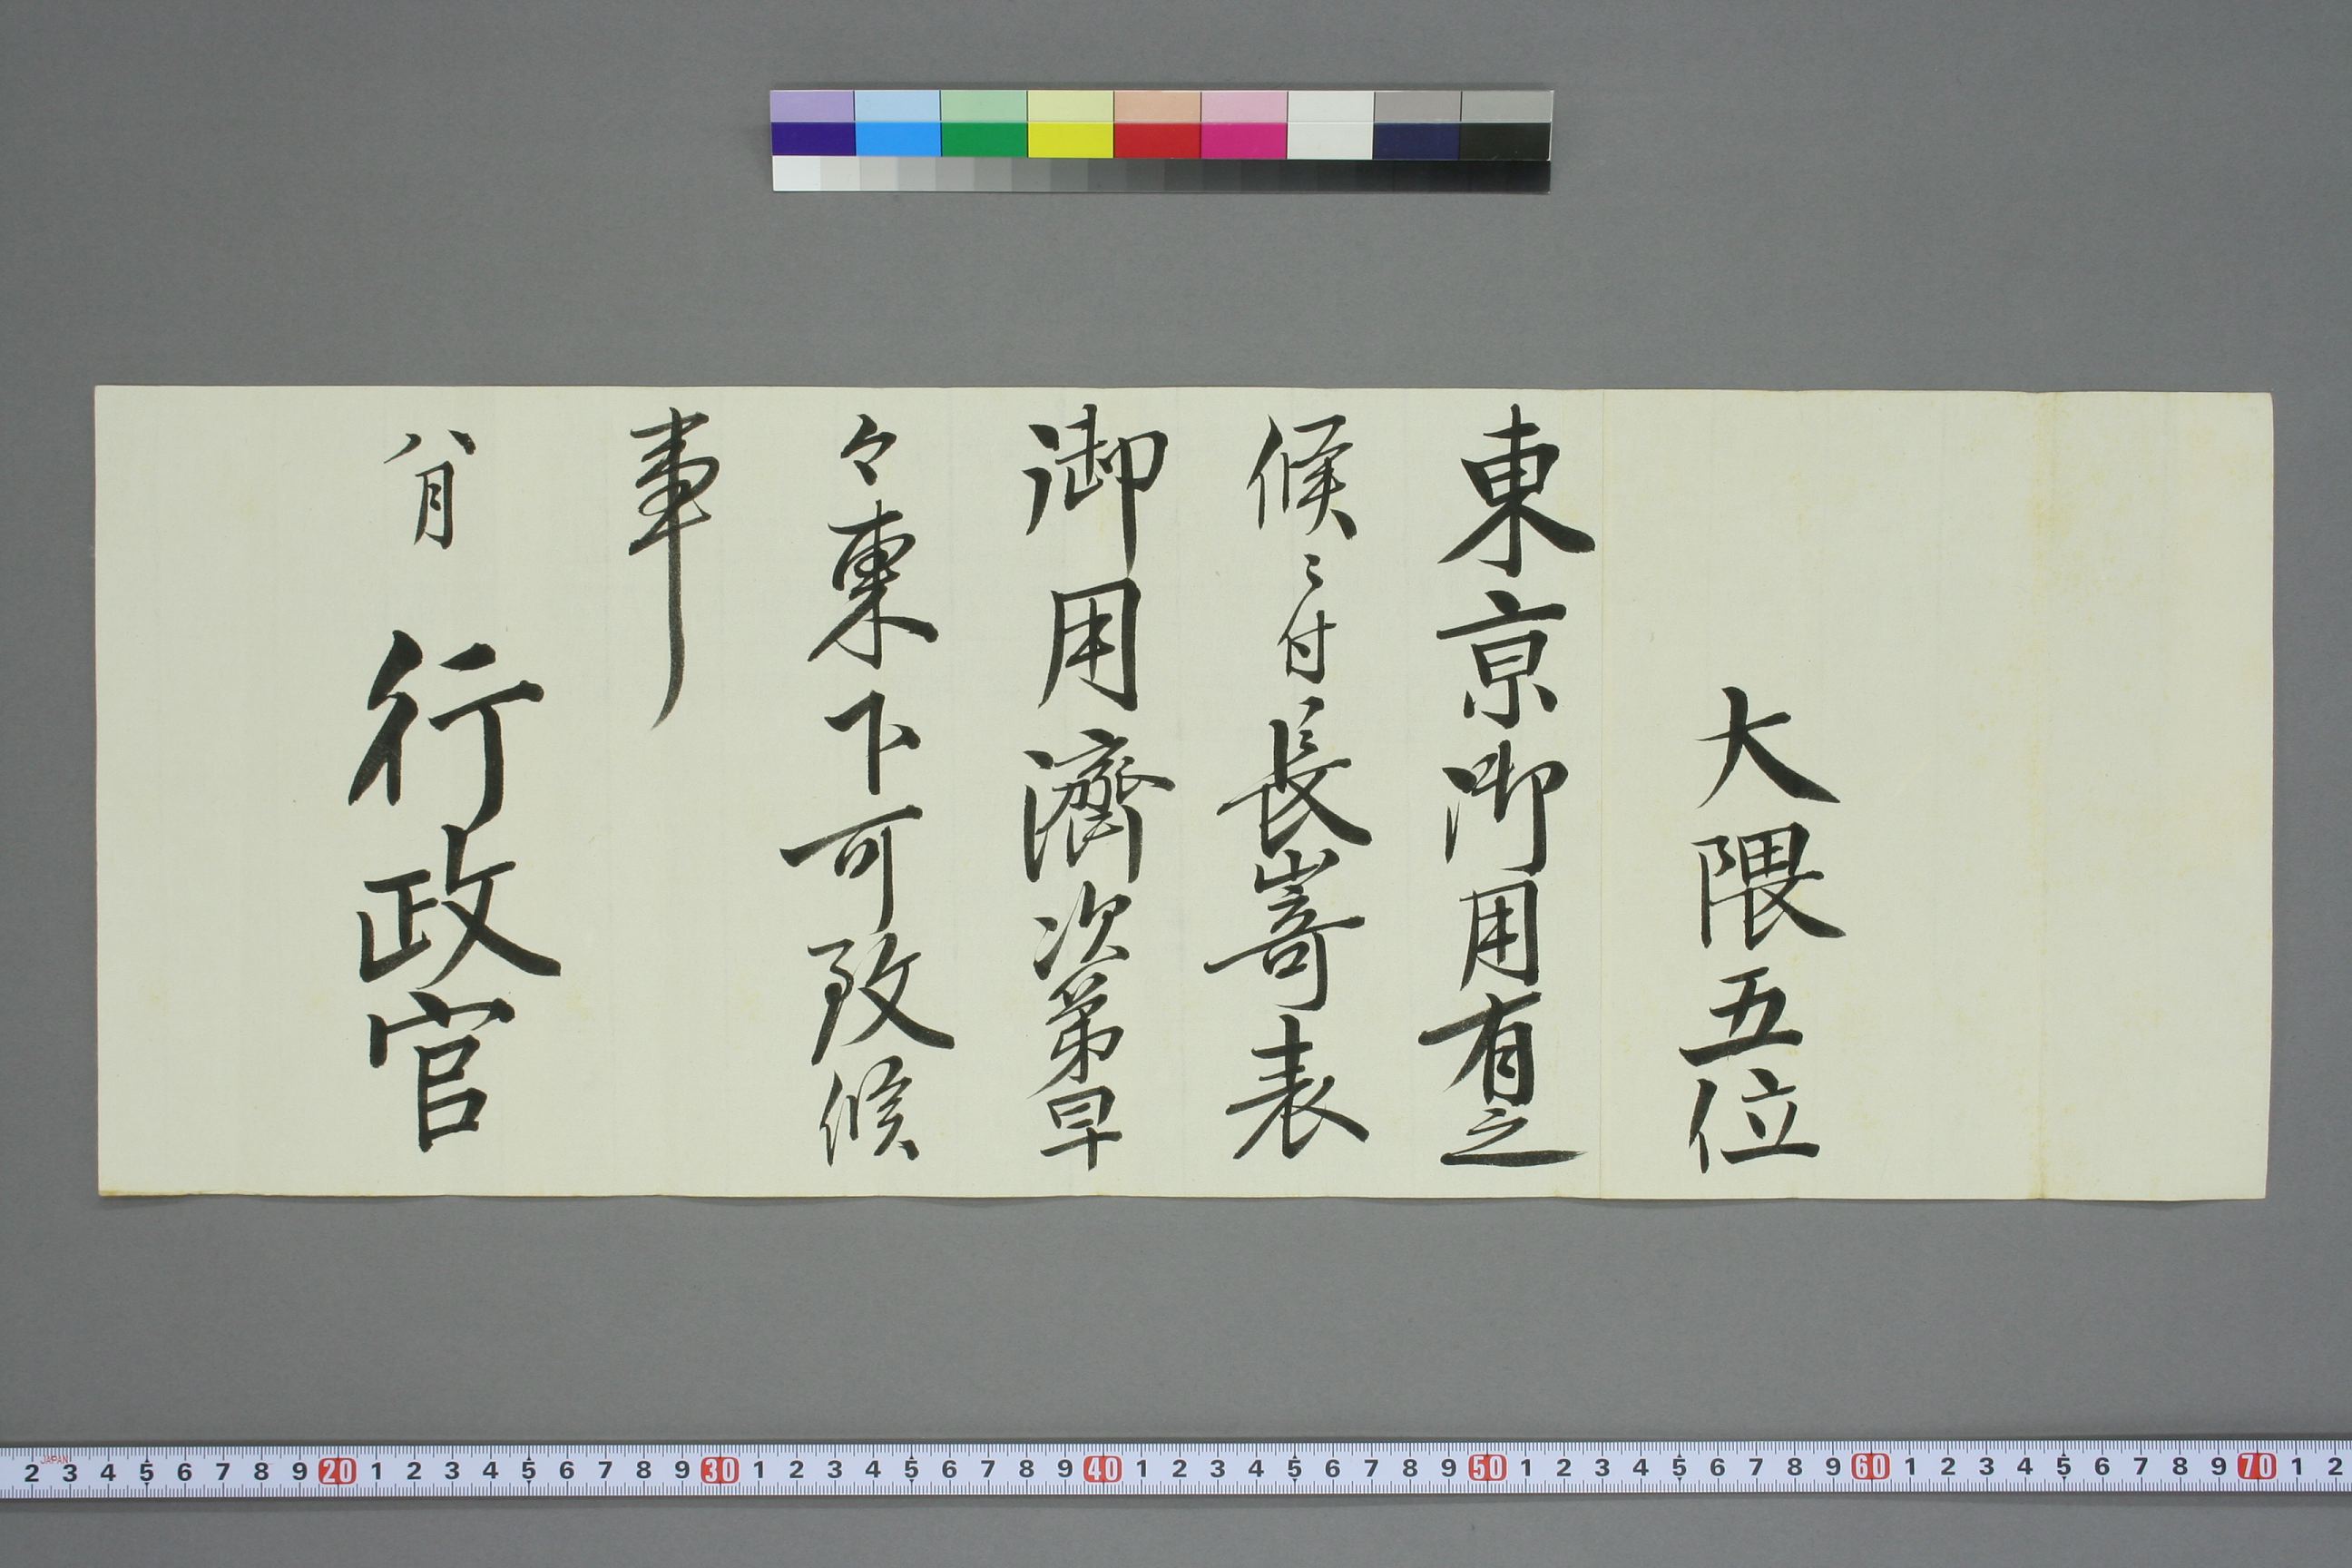 大隈五位
東京御用有之
候ニ付長嵜表
御用濟次第早
々東下可致候
事
八月 行政官
2 3 4 5 6 7 8 9 20 1 2 3 4 5 6 7 8 9 30 1 2 3 4 5 6 7 8 9 40 1 2 3 4 5 6 7 8 9 50 1 2 3 4 5 6 7 8 9 60 1 2 3 4 5 6 7 8 9 70 1 2
JAPAN